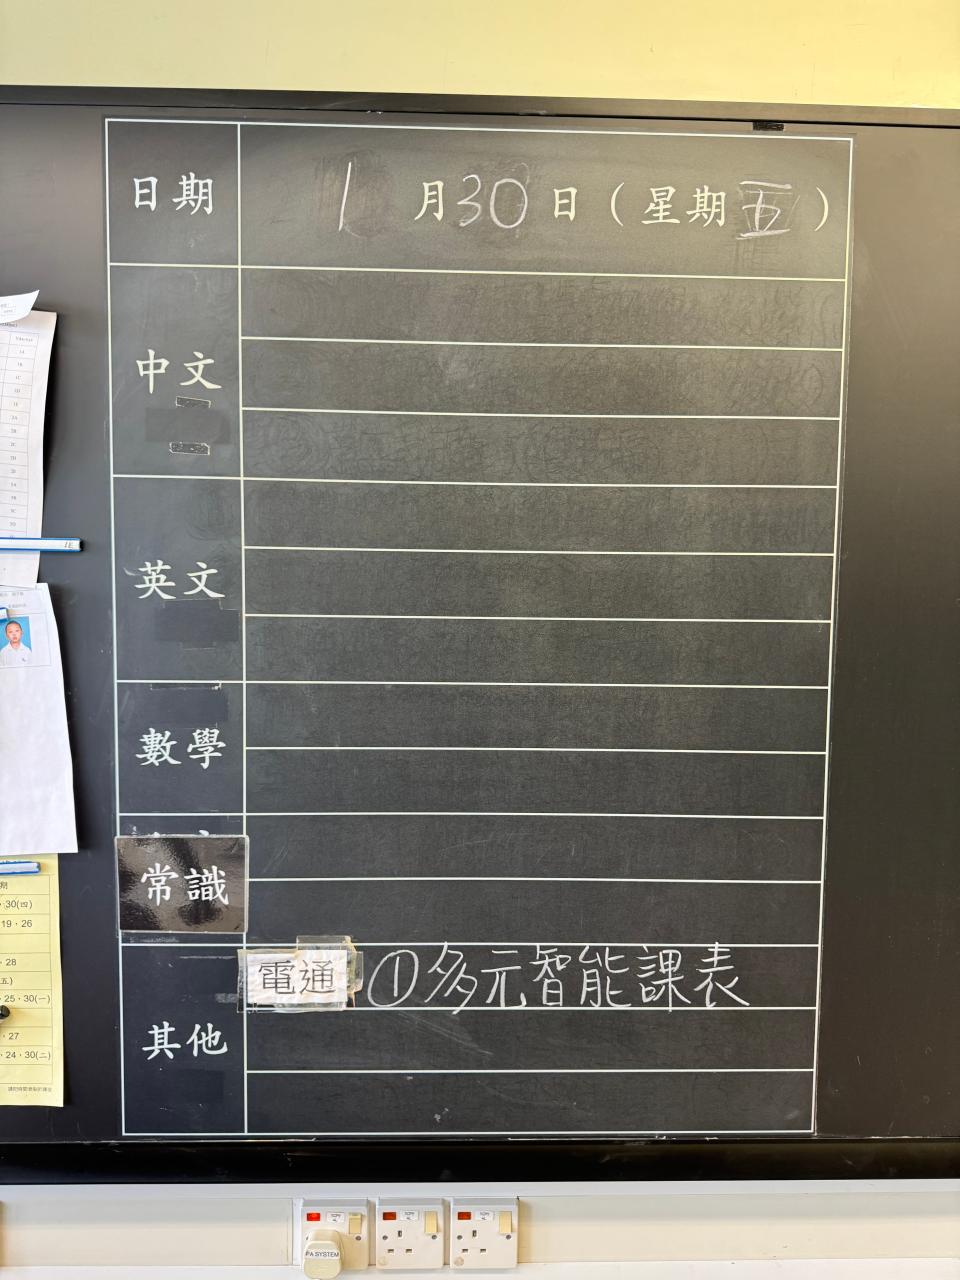 日期 1月30日（星期五）
中文
英文
數學
常識
電通 ①多元智能課表
其他
1E
30(四)
19，26
28
25，30(一)
27
24，30(二)
PA SYSTEM